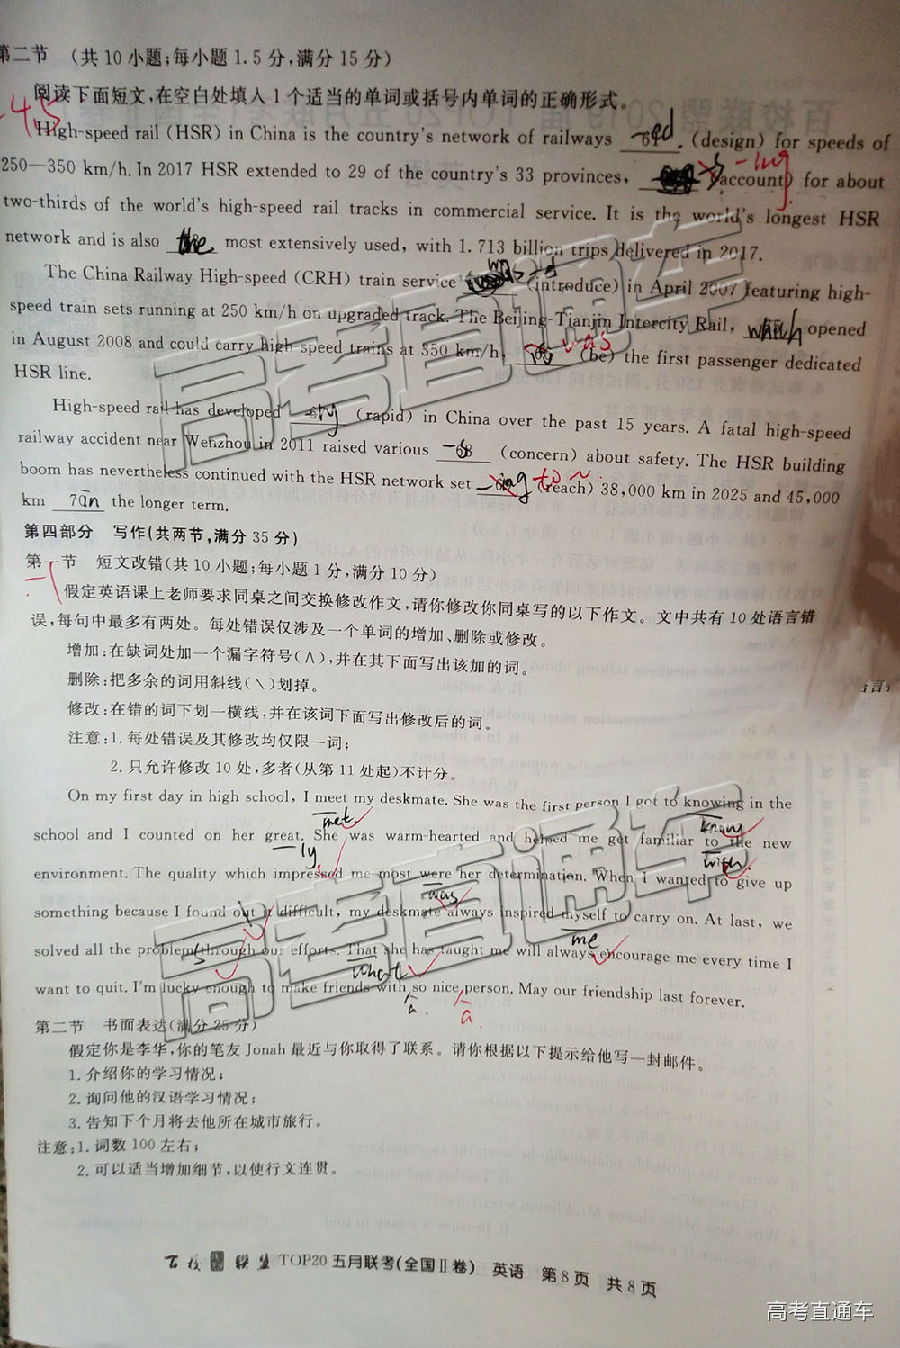 第二节 (共10小题;每小题1.5分,满分15分)
阅读下面短文,在空白处填入1个适当的单词或括号内单词的正确形式。
-4.5
High-speed rail (HSR) in China is the country's network of railways 61 -ed (design) for speeds of
250—350 km/h. In 2017 HSR extended to 29 of the country's 33 provinces, (account) -ing for about
two-thirds of the world's high-speed rail tracks in commercial service. It is the world's longest HSR
network and is also the most extensively used, with 1.713 billion trips delivered in 2017.
The China Railway High-speed (CRH) train service (introduce) in April 2007 featuring high-
speed train sets running at 250 km/h on upgraded track. The Beijing-Tianjin Intercity Rail, which opened
in August 2008 and could carry high-speed trains at 350 km/h, was (be) the first passenger dedicated
HSR line.
High-speed rail has developed (rapid) in China over the past 15 years. A fatal high-speed
railway accident near Wenzhou in 2011 raised various 68 -s (concern) about safety. The HSR building
boom has nevertheless continued with the HSR network set -ing to ~ (reach) 38,000 km in 2025 and 45,000
km 70 in the longer term.
第四部分 写作(共两节,满分35分)
第一节 短文改错(共10小题;每小题1分,满分10分)
-1
假定英语课上老师要求同桌之间交换修改作文,请你修改你同桌写的以下作文。文中共有10处语言错
误,每句中最多有两处。每处错误仅涉及一个单词的增加、删除或修改。
增加:在缺词处加一个漏字符号(∧),并在其下面写出该加的词。
删除:把多余的词用斜线(\)划掉。
修改:在错的词下划一横线,并在该词下面写出修改后的词。
注意:1. 每处错误及其修改均仅限一词;
2. 只允许修改10处,多者(从第11处起)不计分。
On my first day in high school, I meet my deskmate. She was the first person I got to knowing in the
met know
school and I counted on her great. She was warm-hearted and helped me get familiar to the new
-ly with
environment. The quality which impressed me most were her determination. When I wanted to give up
was
something because I found out it difficult, my deskmate always inspired myself to carry on. At last, we
\ me
solved all the problem through our efforts. That she has taught me will always encourage me every time I
s What
want to quit. I'm lucky enough to make friends with so nice person. May our friendship last forever.
∧ a ∧ a
第二节 书面表达(满分25分)
假定你是李华,你的笔友Jonah最近与你取得了联系。请你根据以下提示给他写一封邮件。
1. 介绍你的学习情况;
2. 询问他的汉语学习情况;
3. 告知下个月将去他所在城市旅行。
注意:1. 词数100左右;
2. 可以适当增加细节,以使行文连贯。
百校联盟 TOP20 五月联考(全国Ⅱ卷) 英语 第8页 共8页
高考直通车
高考直通车
高考直通车